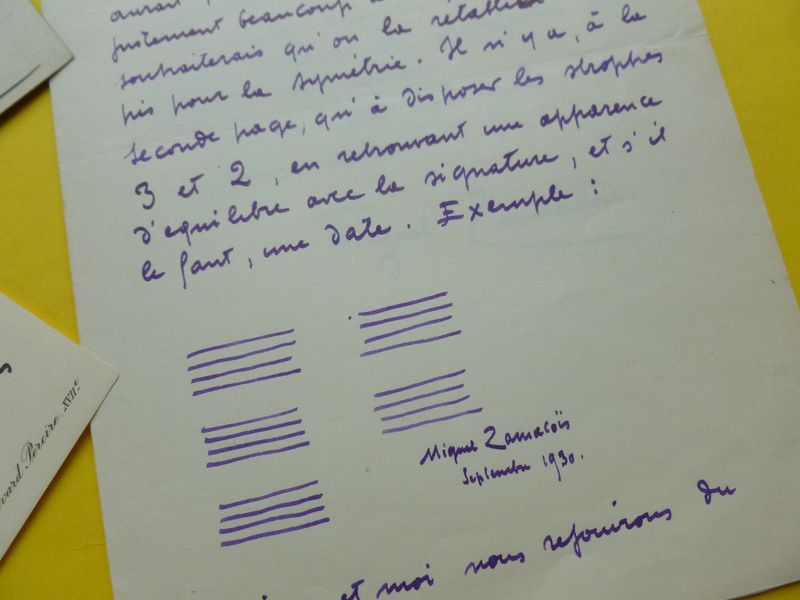 justement beaucoup
souhaiterais qu'on la rétablisse
pis pour la symétrie. Il n'y a, à la
seconde page, qu'à disposer les strophes
3 et 2, en retrouvant une apparence
d'equilibre avec la signature, et s'il
le faut, une date. Exemple :
Miguel Zamacoïs
Septembre 1930.
et moi nous rejouirons du
vard Pereire. XVIIe